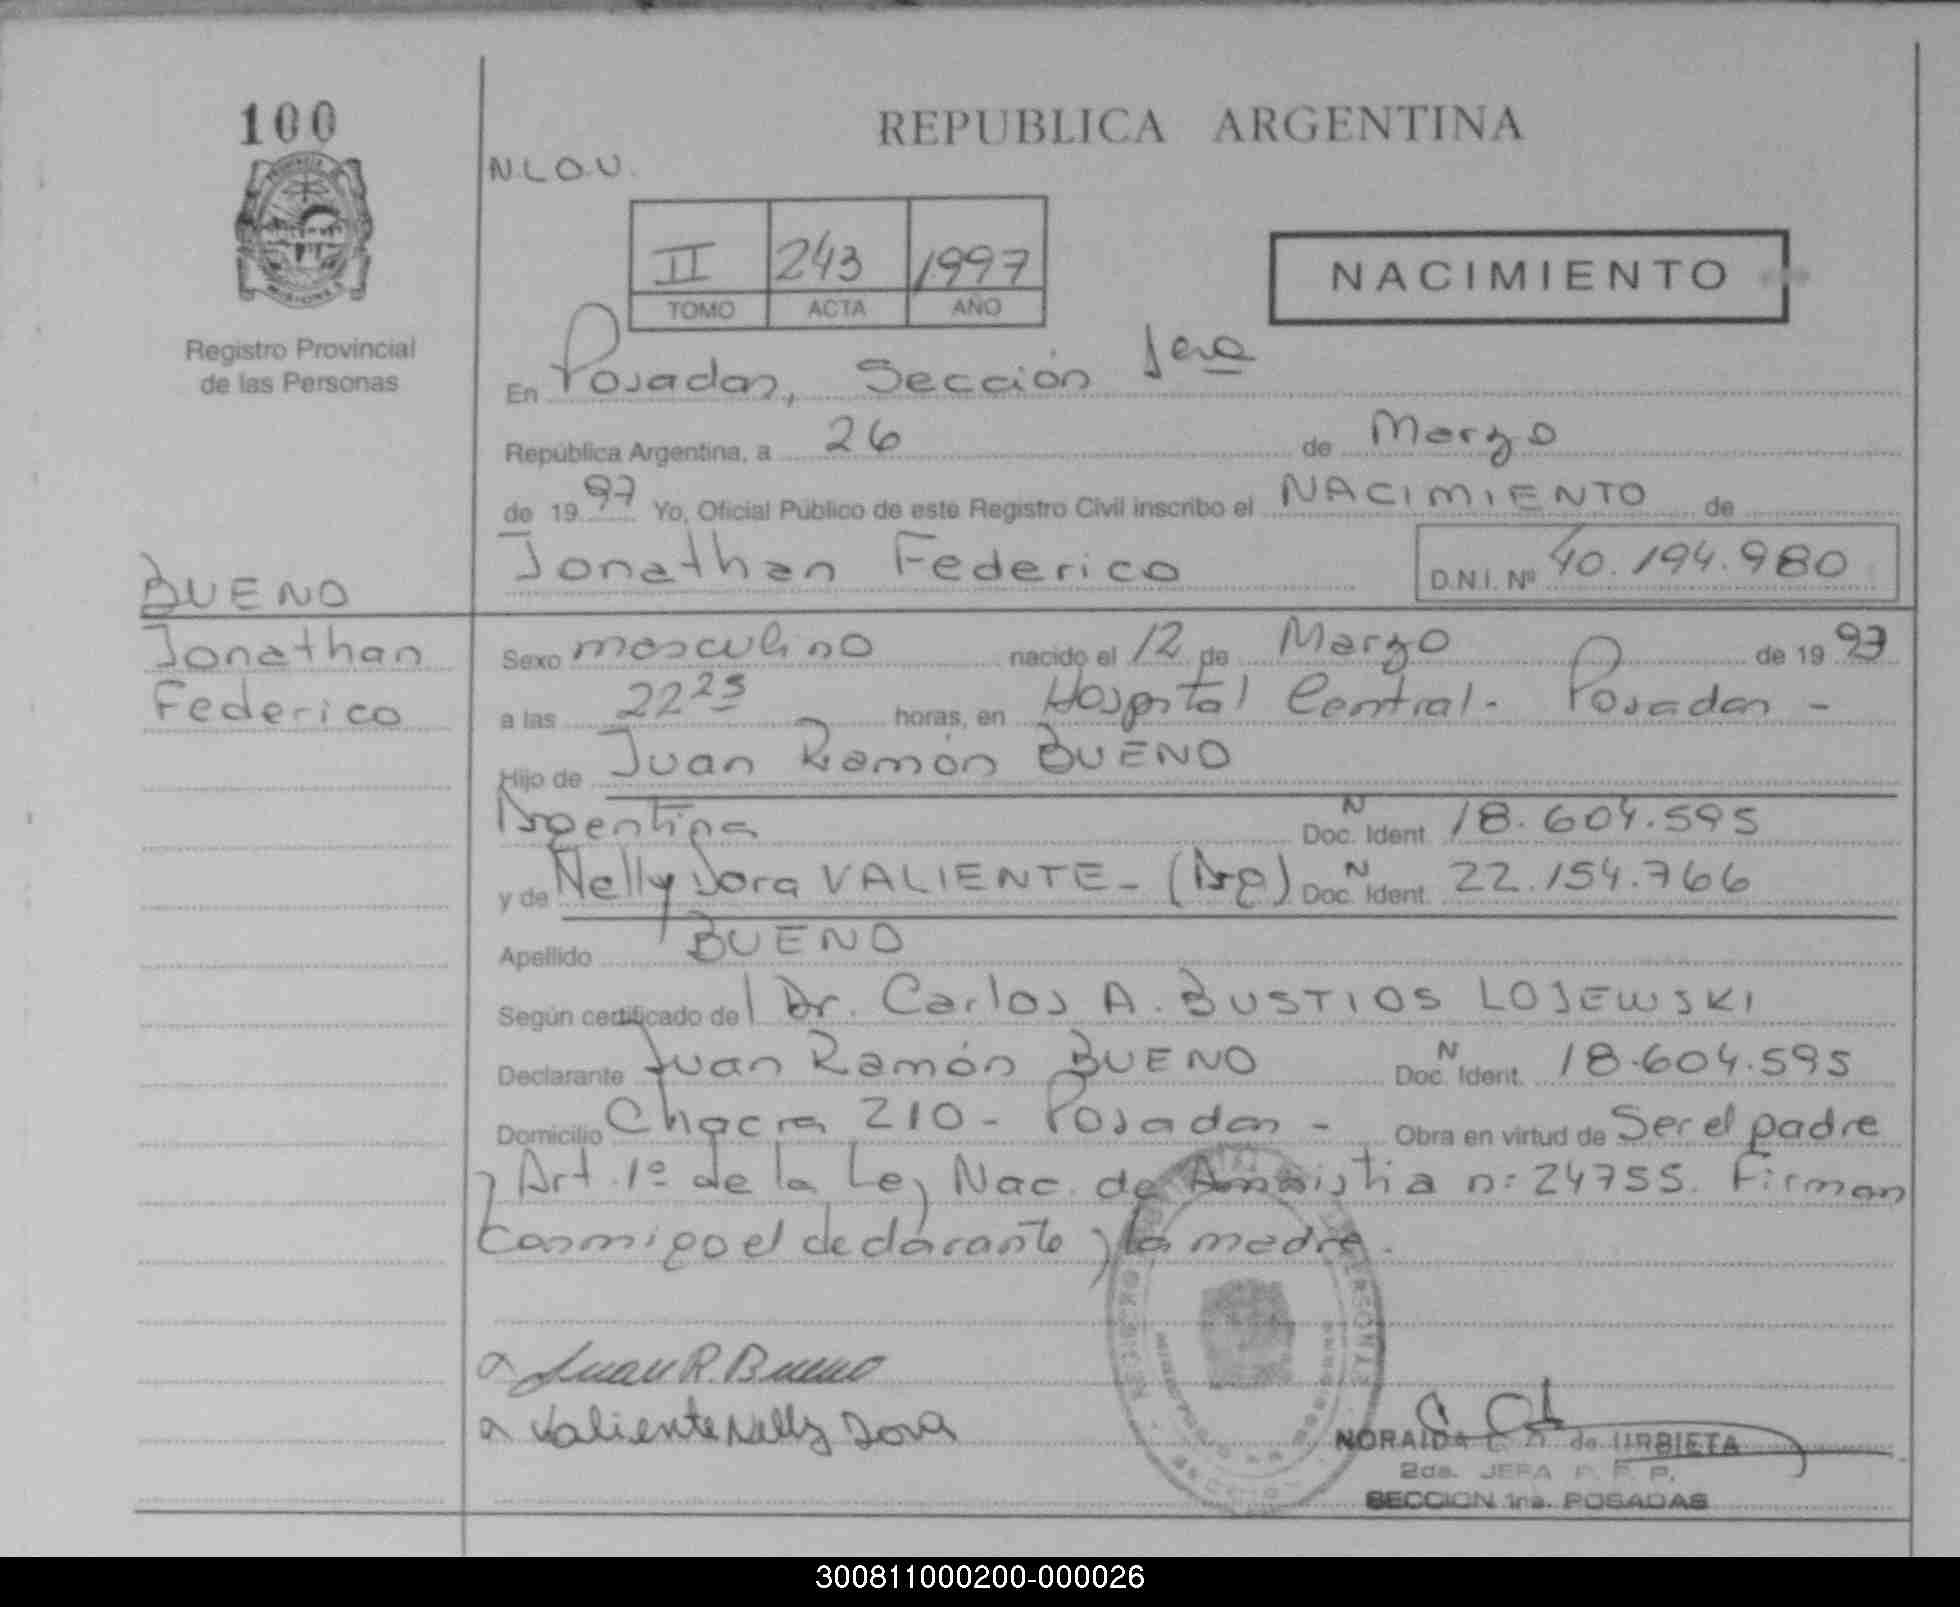 100
REPUBLICA ARGENTINA
N.L.O.U.
II 243 1997
TOMO ACTA AÑO
NACIMIENTO
Registro Provincial
de las Personas
En Posadas, Sección 1era
República Argentina, a 26 de Marzo
de 19 97 Yo, Oficial Público de este Registro Civil inscribo el NACIMIENTO de
Jonathan Federico D.N.I. Nº 40.194.980
BUENO
Jonathan
Federico
Sexo masculino nacido el 12 de Marzo de 19 97
a las 22 23 horas, en Hospital Central - Posadas -
Hijo de Juan Ramón BUENO
Argentina Doc. N Ident. 18.604.595
y de Nelly Dora VALIENTE - (Arg) Doc. N Ident. 22.154.766
Apellido BUENO
Según certificado del Dr. Carlos A. BUSTIOS LOJEWSKI
Declarante Juan Ramón BUENO Doc. N Ident. 18.604.595
Domicilio Chacra 210 - Posadas - Obra en virtud de Ser el padre
y Art. 1º de la Ley Nac. de Amnistia nº 24755. Firman
conmigo el declarante y la madre.
Juan R. Bueno
Valiente Nelly Dora
NORAIDA de URBIETA
2da. JEFA R. P. P.
SECCION 1ra. POSADAS
300811000200-000026